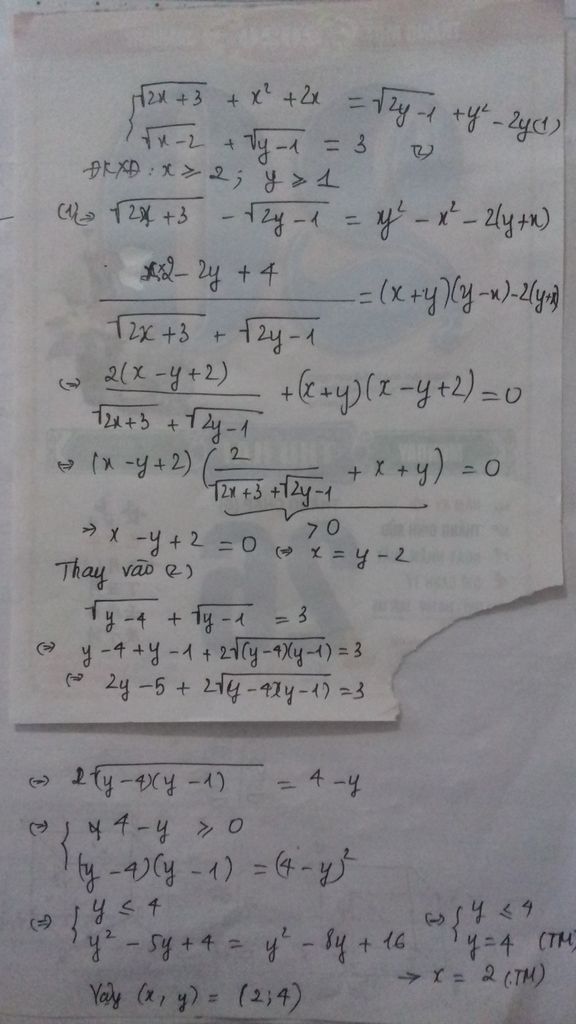 √(2x+3) + x² + 2x = √(2y-1) + y² - 2y (1)
√(x-2) + √(y-1) = 3 (2)
ĐKXĐ: x ≥ 2; y ≥ 1
(1) ⇔ √(2x+3) - √(2y-1) = y² - x² - 2(y+x)
(2x - 2y + 4)/(√(2x+3) + √(2y-1)) = (x+y)(y-x) - 2(y+x)
⇔ 2(x-y+2)/(√(2x+3) + √(2y-1)) + (x+y)(x-y+2) = 0
⇔ (x-y+2)(2/(√(2x+3) + √(2y-1)) + x + y) = 0
> 0
⇒ x - y + 2 = 0 ⇔ x = y - 2
Thay vào (2)
√(y-4) + √(y-1) = 3
⇔ y - 4 + y - 1 + 2√((y-4)(y-1)) = 3
⇔ 2y - 5 + 2√((y-4)(y-1)) = 3
⇔ 2√((y-4)(y-1)) = 4 - y
⇔ { 4 - y ≥ 0
(y-4)(y-1) = (4-y)²
⇔ { y ≤ 4 ⇔ { y ≤ 4
y² - 5y + 4 = y² - 8y + 16 y = 4 (TM)
→ x = 2 (TM)
Vậy (x, y) = (2; 4)